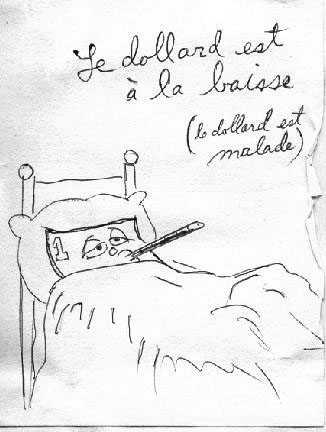 Le dollard est
à la baisse
(le dollard est
malade)
1